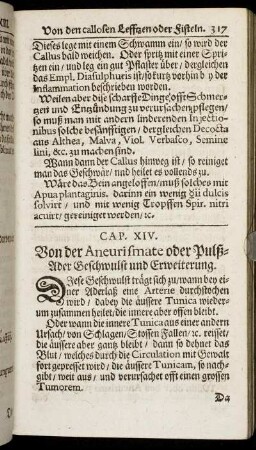 Von den callosen Lefftzen oder Fisteln. 317
Dieses lege mit einem Schwamm ein/ so wird der
Callus bald weichen. Oder spritz mit einer Sprit-
zen ein/ und leg ein gut Pflaster über/ dergleichen
das Empl. Diasulphuris ist/ so kurtz vorhin b y der
Inflammation beschrieben worden.
Weilen aber dise scharffe Ding offt Schmer-
tzen und Entzündung zu verursachen pflegen/ so
muß man mit andern lindrenden Injectio-
nibus solche besänfftigen/ dergleichen Decocta
aus Althea, Malva, Viol. Verbasco, Semine
lini, &c. zu machen sind.
Wann dann der Callus hinweg ist/ so reiniget
man das Geschwär/ und heilet es vollends zu.
Wäre das Bein angeloffen/ muß solches mit
Apua plantaginis, darinn ein wenig dulcis
solvirt/ und mit wenig Tropffen Spir. nitri
acuirt/ gereiniget werden/ &c.
CAP. XIV.
Von der Aneurismate oder Pulß-
Ader Geschwulst und Erweiterung.
Diese Geschwulst trägt sich zu/ wann bey ei-
ner Aderlaß eine Arterie durchstochen
wird/ dabey die äussere Tunica wieder-
um zusammen heilet/ die innere aber offen bleibt.
Oder wann die innere Tunica aus einer andern
Ursach/ von Schlagen/ Stossen Fallen/ &c. reisset/
die äussere aber gantz bleibt/ dann so dehnet das
Blut/ welches durch die Circulation mit Gewalt
fort gepresset wird/ die äussere Tunicam, so nach-
gibt/ weit aus/ und verursachet offt einen grossen
Tumorem.
Da